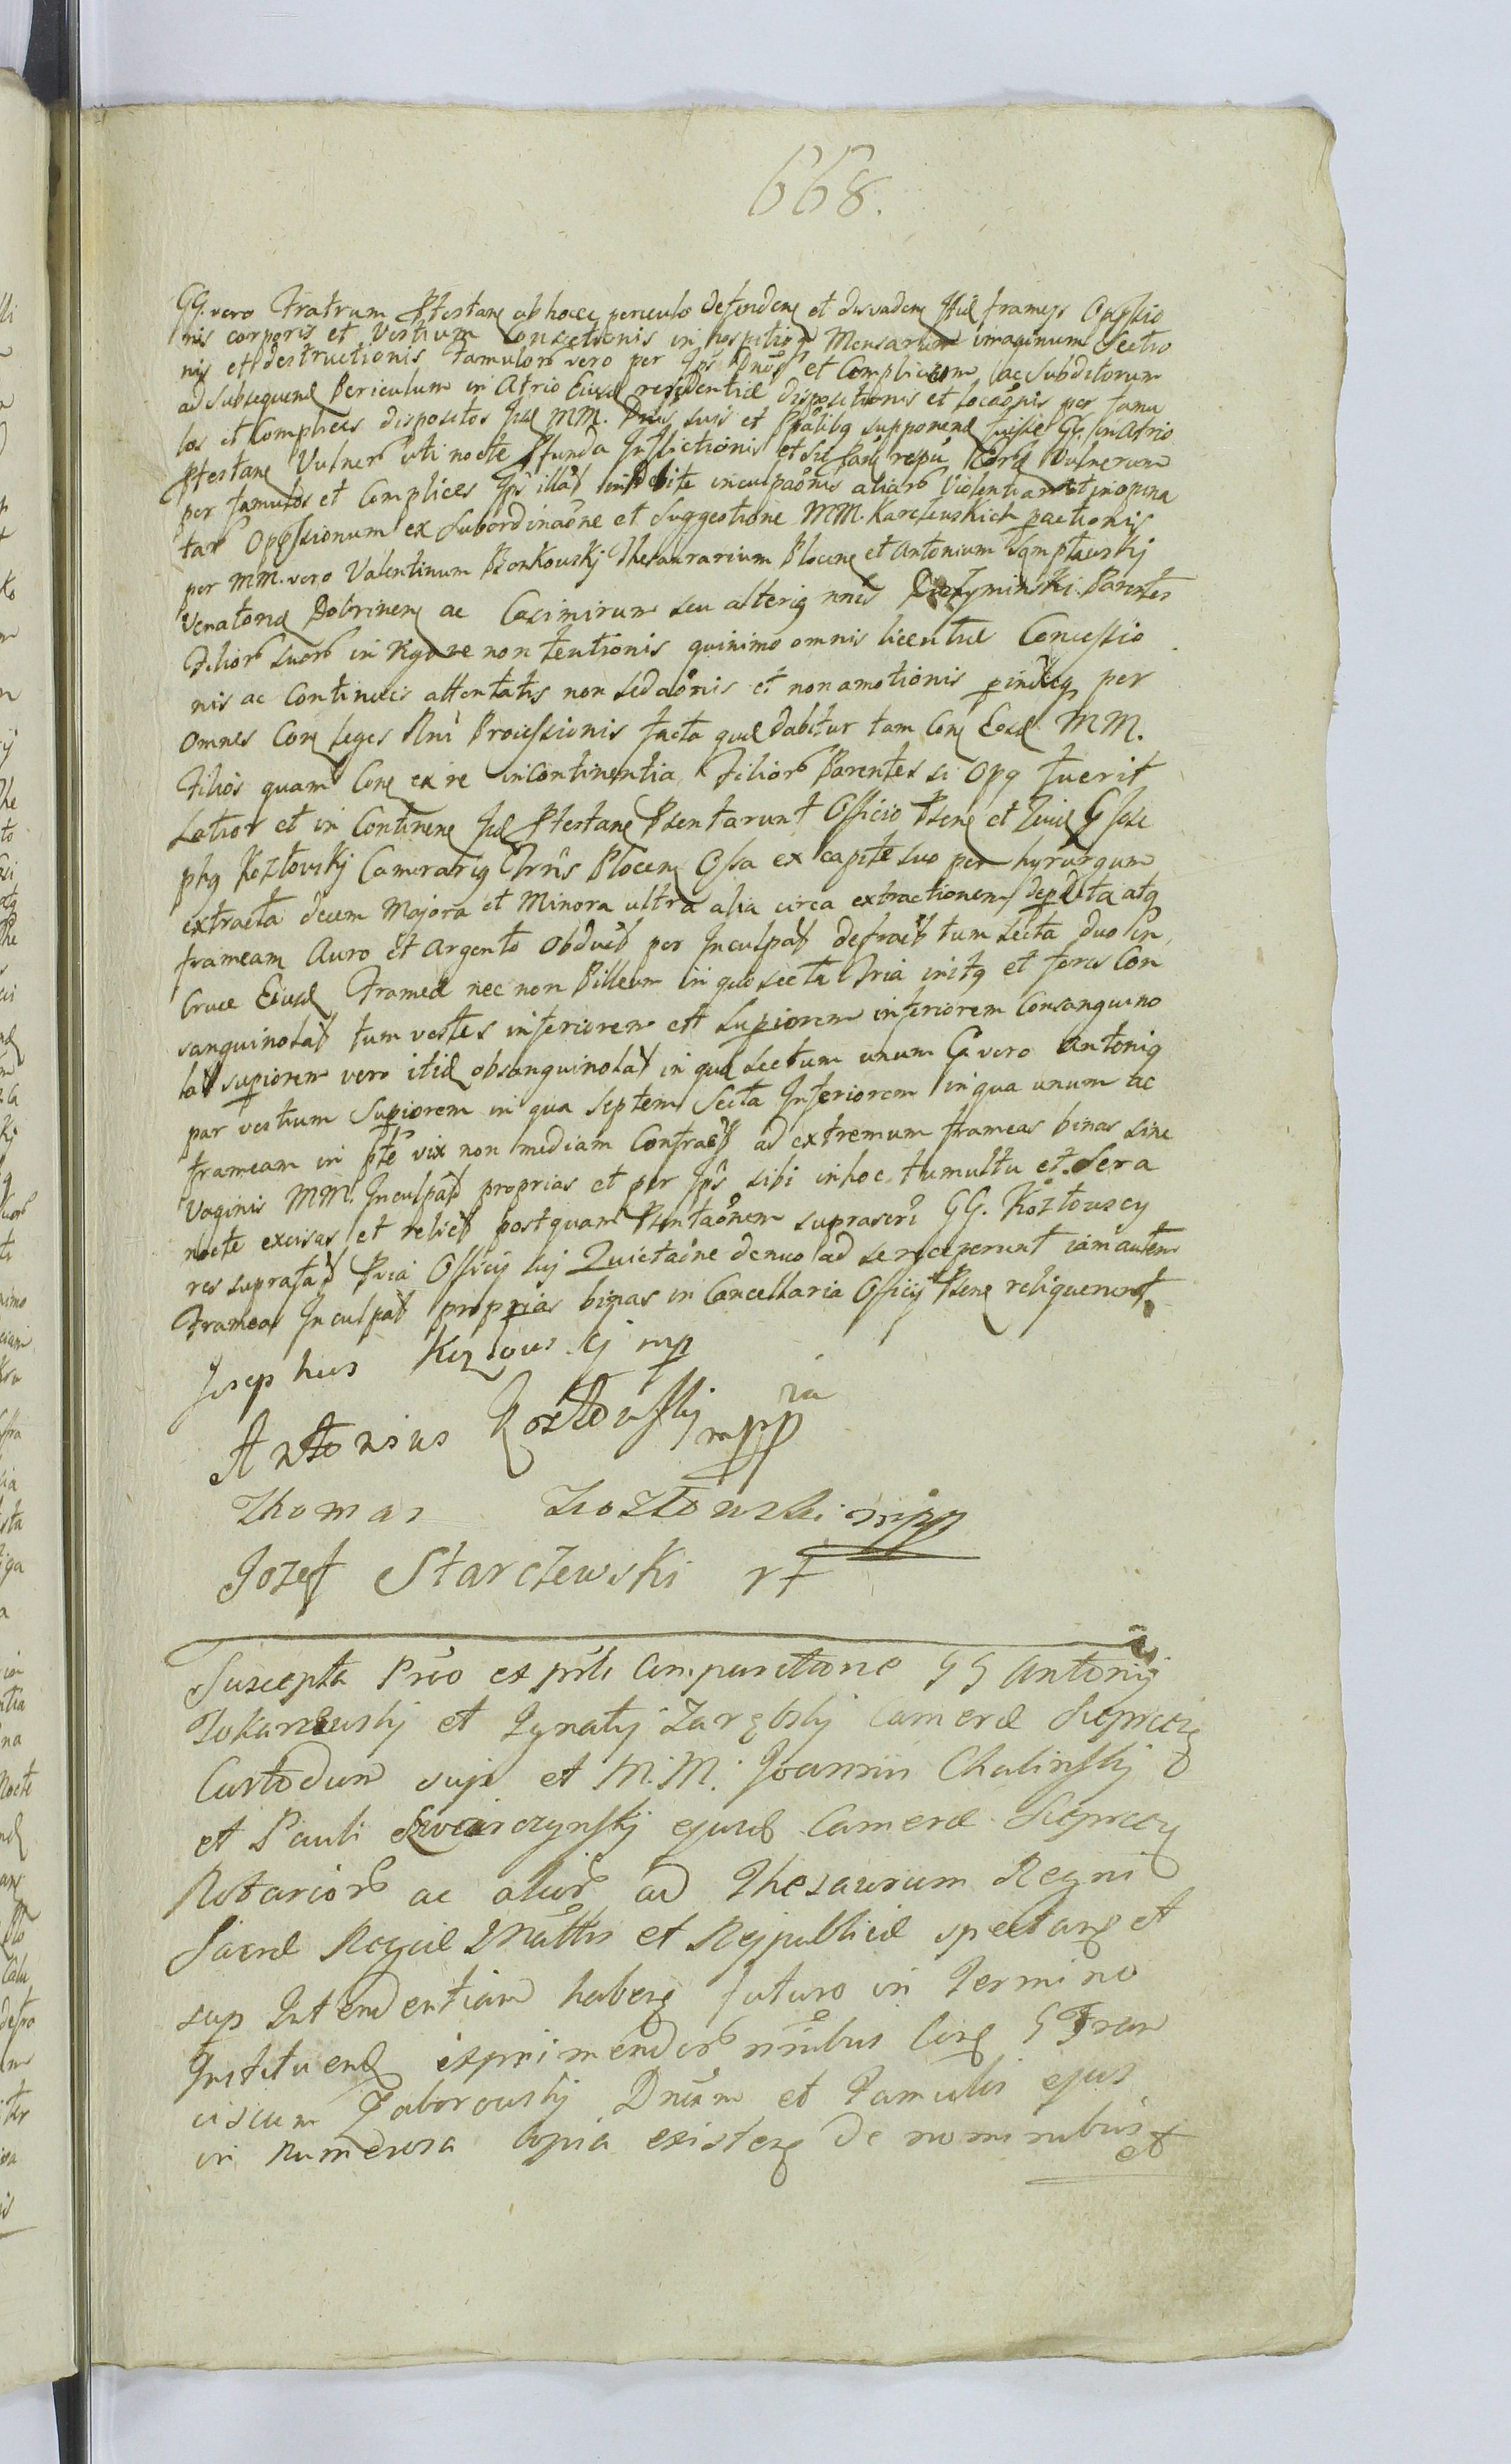 668.
GG. vero Fratrum Ptestane ab hocce periculo defendene et dissuadene frameis Oppssio
nis corporis et Vestium Consectionis in hospitio Mensarum imaginum Sectio
nis et destructionis famulor vero per Ips Dnos et Complicum ac Subditorum
ad Subsequend Periculum in Atrio Eiusd residentiæ dispositionis et locaonis per famu
los et Complices dispositos MM. Dnis suis et supponend fuisse GG. in Atrio
Ptestane Vulner uti nocte Pfunda Inflictionis et sic Vulnerum
per famulos et Complices Ips illat indebite inculpaonis aliar Violentiar et inopina
tar Oppssionum ex Subordinaone et Suggestione MM. Karczewskich pactionis
per MM. vero Valentinum Bonkowskj Thesaurarium Plocene et Antonium
Venatorem Dobrinene ac Casimirum seu alterig nnis Parentes
Filior suor in rigore non tentionis quinimo omnis licentiæ Concessio
nis ac Continuis attentatis non sedaonis et non amotionis pindeq per
omnes Cone leges Rni Processionis facta quæ dabitur tam Cone Eosd MM.
Filios quam Cone ex re incontinentia Filior Parentes si Opq fuerit
Latior et in Continene Iid Ptestane Psentarunt Officio Psene et G Jose
phq Kozłowskj Camerariq Trris Plocene Ossa ex capite suo per hyrurgum
extracta decem Majora et Minora ultra alia circa extractionem depdita atq
frameam Auro et Argento obduct per Inculpat defract tum secta duo in
Cruce Eiusd Frameæ nec non Pilleum in quo secta tria initq et foris Con
sanguinolat tum vestes inferiorem et supiorem inferiorem Consanguino
lat supiorem vero itid obsanguinolat in qua sectum unum G vero Antoniq
par vestium Supiorem in qua septem secta Inferiorem in qua unum ac
frameam in pte vix non mediam Contract ad extremum frameas binas sine
vaginis MM. Inculpat proprias et per Ips sibi in hoc tumultu et Sera
nocte excisas et relict postquam Psentaonem suprascri GG. Kozłowscy
res suprafat Pvia Officij sui Quietaone denuo ad se receperunt iam autem
Frameas Inculpat proprias binas in Cancellaria Officij Psene reliquerunt.
Josephus Kozłowskj mp
Antonius Kozłowskj mpp ria
Thomas Kozłowski mpp
Jozef Starczewski rt
Suscepta Prio ex prsli Comparitione GG Antonij
Tokarzewskj et Ignatij Zarębskj Cameræ Sieprcene
Custodum suje et M.M. Joannin Chalinskj
et Pauli ejusd Cameræ Sieprcene
Notarior ac alior ad Thesaurum Regni
Sacræ Regiæ Mattis et Rejpublicæ spectane et
sup Intendentiam habene futuro in Termino
Instituend exprimendor nnibus Cone G Fran
ciscum Zaborowskj Dnum et Famulis ejus
in numerosa copia existene de nominibus
et